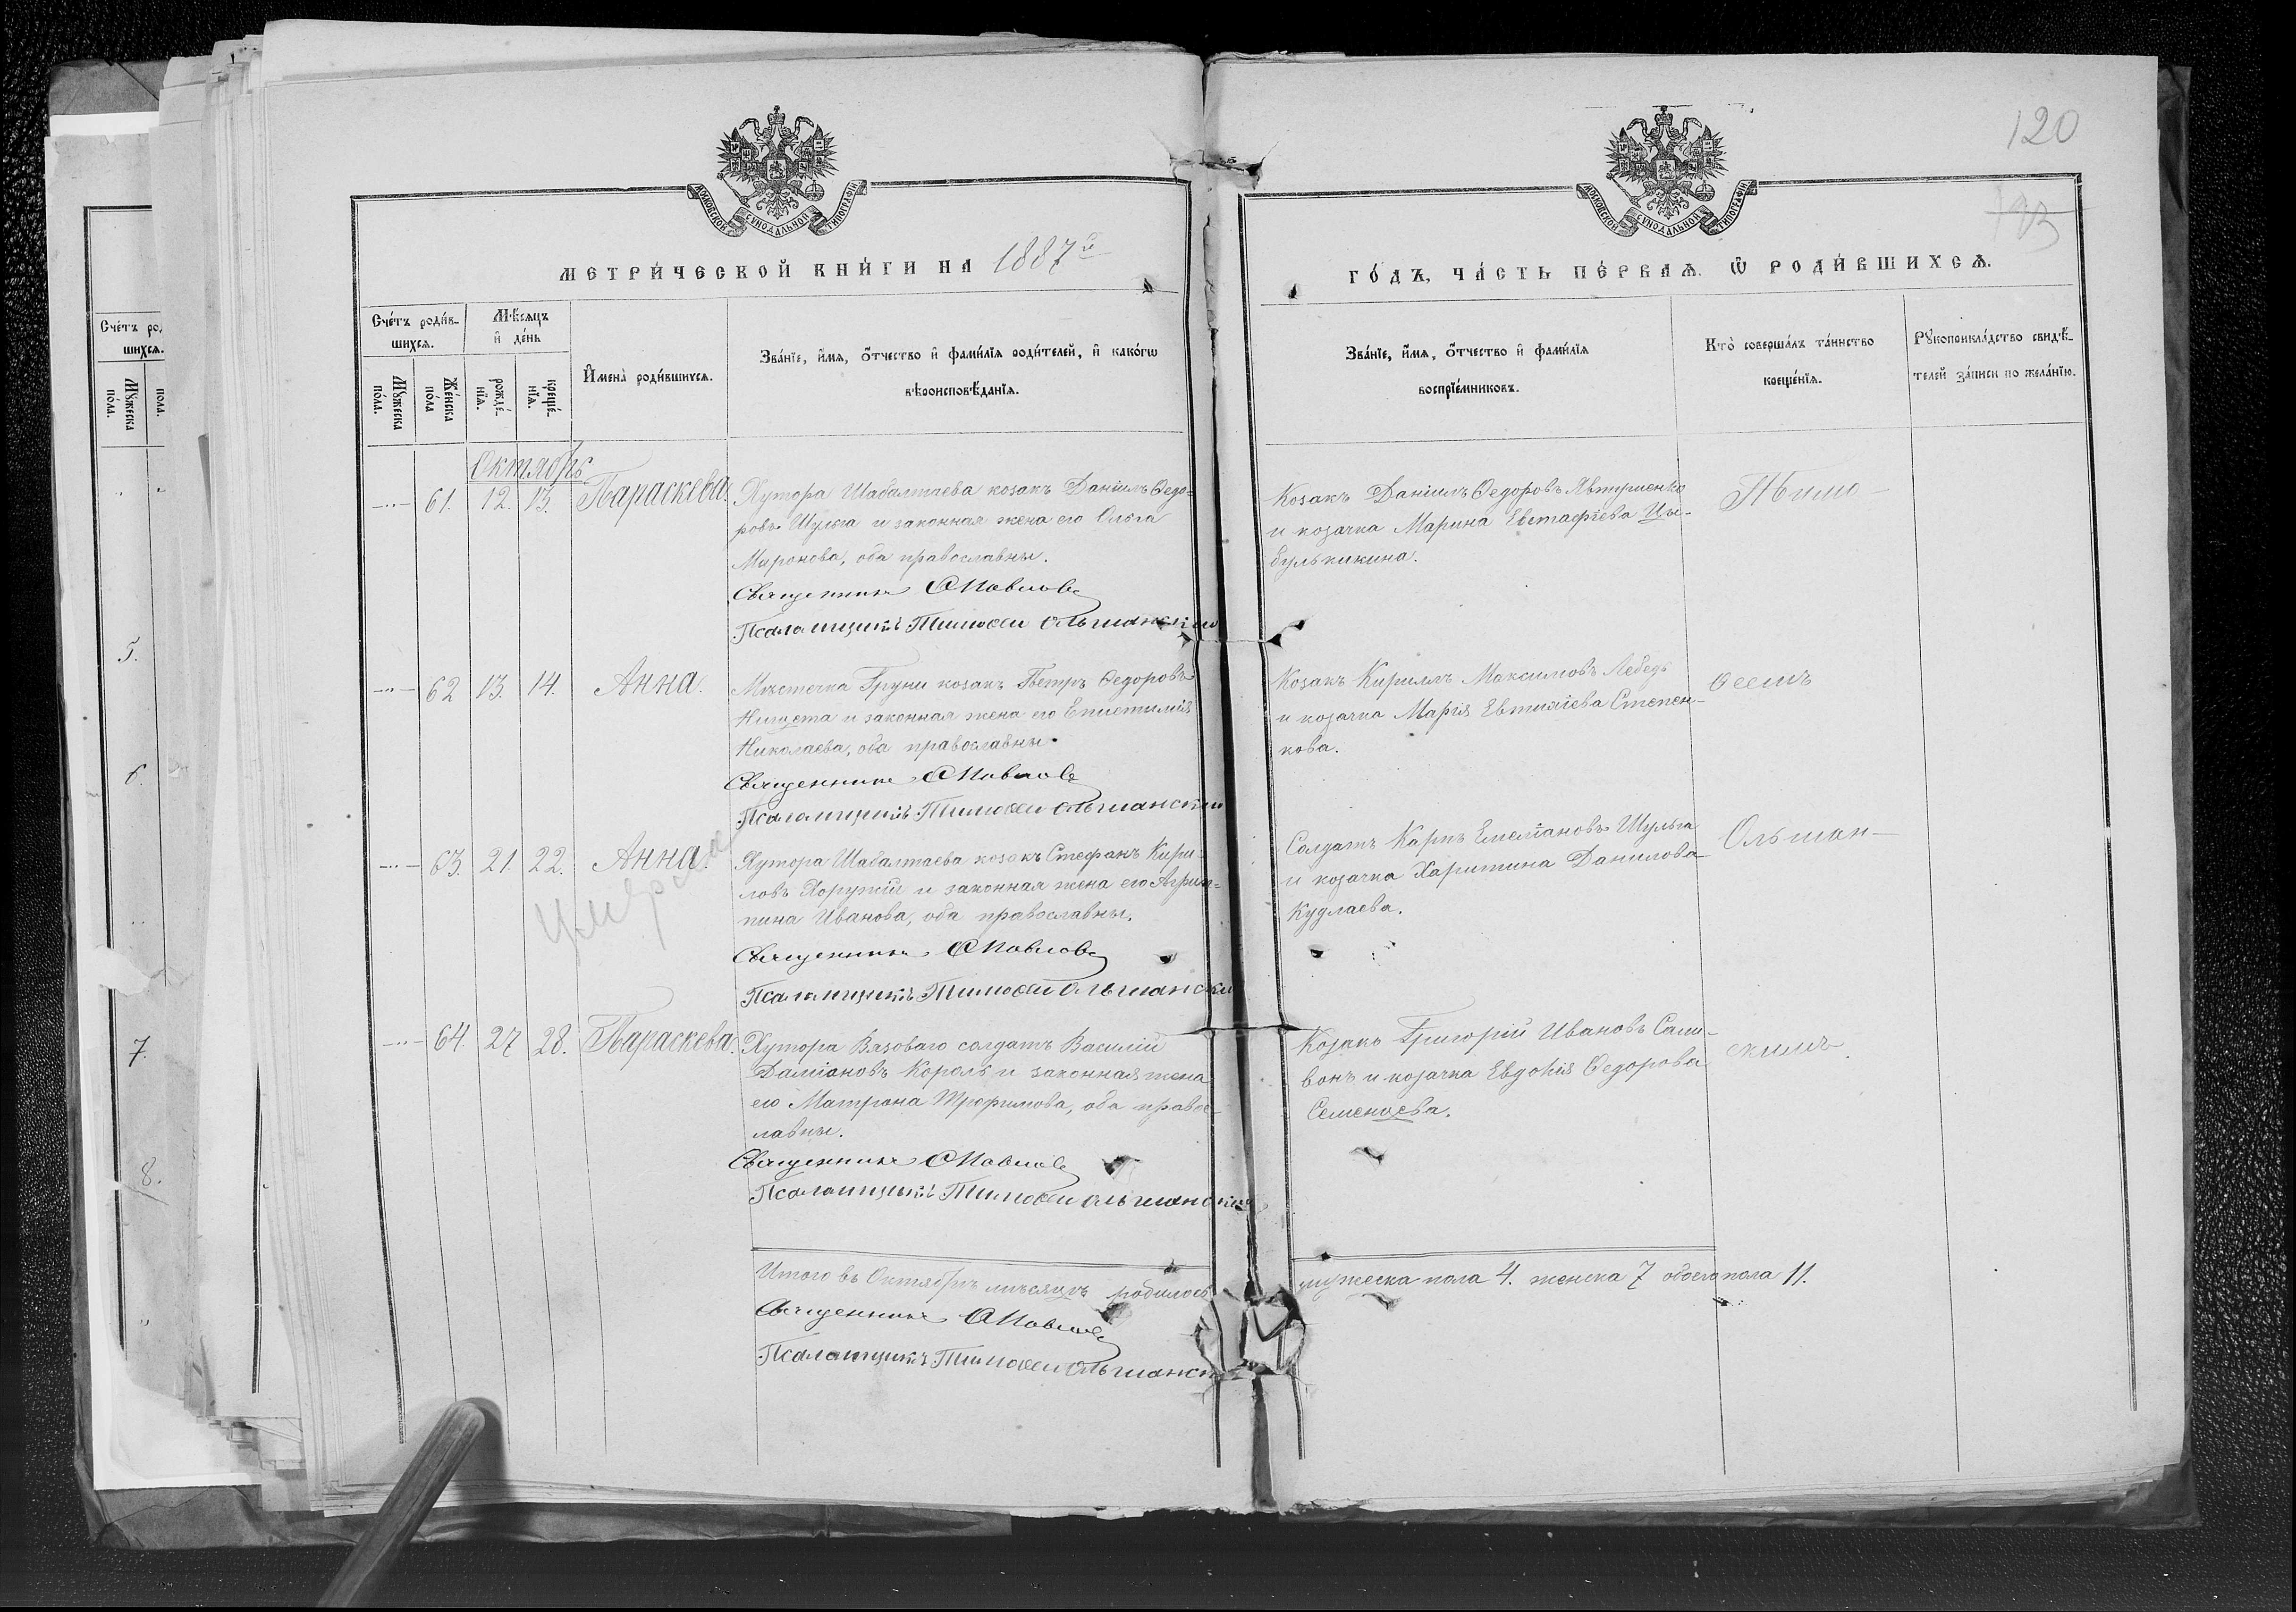 120
МОСКОВСКОЙ СѴНОДАЛЬНОЙ ТИПОГРАФІИ
МОСКОВСКОЙ СѴНОДАЛЬНОЙ ТИПОГРАФІИ
МЕТРИ́ЧЕСКОЙ КНИ́ГИ НА 1887й
ГО́ДЪ, ЧА́СТЬ ПЕ́РВАѦ. Ѿ РОДИ́ВШИХСѦ.
Сче́тъ роди́в-
шихсѧ.
Мѣ́сѧцъ
и҆ де́нь
Мꙋ́жеска
по́ла.
Же́нска
по́ла
рожде́-
нїѧ.
креще́-
нїѧ.
И҆мена̀ роди́вшихсѧ.
Зва́нїе, и҆́мѧ, ѻ҆́тчество и҆ фами́лїѧ роди́телей, и҆ како́гѡ
вѣроисповѣ́данїѧ.
Зва́нїе, и҆́мѧ, ѻ҆́тчество и҆ фами́лїѧ
воспрїе́мниковъ.
Кто̀ соверша́лъ та́инство
креще́нїѧ.
Рꙋкоприкла́дство свидѣ́-
телей за́писи по жела́нїю.
Октябрь
61. 12. 13. Параскева
Хутора Шабалтаева козакъ Даніилъ Ѳедо-
ровъ Шульга и законная жена его Ольга
Миронова, оба православны.
Священникъ С Павловъ
Псаломщикъ Тимоѳей Ольшанский
Козакъ Даніилъ Ѳедоровъ Явтушенко
и козачка Марина Евстафіева Цы-
булькикина.
Тимо-
62 13. 14. Анна.
Мѣстечка Груни козакъ Петръ Ѳедоровъ
и законная жена его Епистимія
Николаева, оба православны.
Священникъ С Павловъ
Псаломщикъ Тимоѳей Ольшанский
Козакъ Кириллъ Максимовъ Лебедь
и козачка Марія Евтихіева Степен-
кова.
ѳеемъ
63. 21. 22. Анна.
умерла
Хутора Шабалтаева козакъ Стефанъ Кири-
ловъ Хоружій и законная жена его Агрип-
пина Иванова, оба православны.
Священникъ С Павловъ
Псаломщикъ Тимоѳей Ольшанский
Солдатъ Карпъ Емеліановъ Шульга
и козачка Харитина Данилова
Кудлаева.
Ольшан-
64. 27 28. Параскева.
Хутора Вязоваго солдатъ Василій
Даміановъ Король и законная жена
его Матрона Трофимова, оба правос-
лавны.
Священникъ С Павловъ
Псаломщикъ Тимоѳей Ольшанский
Козакъ Григорій Ивановъ Сали-
вонъ и козачка Евдокія Ѳедорова
Семенцева.
скимъ.
Итого въ Октябрѣ мѣсяцѣ родилось
мужеска пола 4. женска 7 обоего пола 11.
Священникъ С Павловъ
Псаломщикъ Тимоѳей Ольшанск
Сче́тъ ро
шихсѧ.
Мꙋ́жеска
по́ла.
пола.
5.
6.
7.
8.